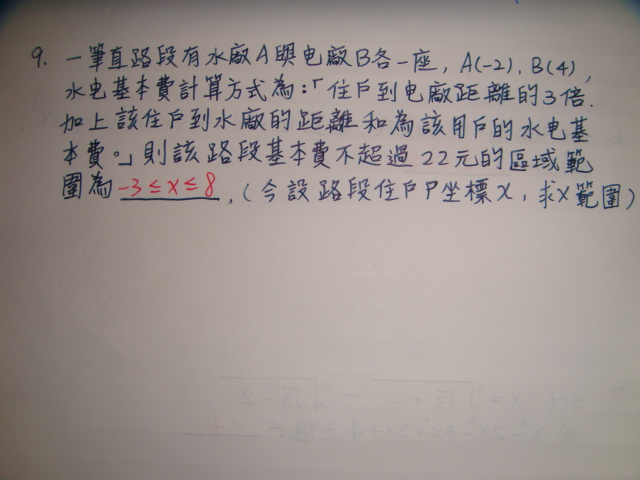 9. 一筆直路段有水廠A與电廠B各一座, A(-2), B(4),
水电基本費計算方式為:「住戶到电廠距離的3倍.
加上該住戶到水廠的距離和為該用戶的水电基
本費。」則該路段基本費不超過22元的區域範
圍為 -3≤x≤8 , (令設路段住戶P坐標x, 求x範圍)